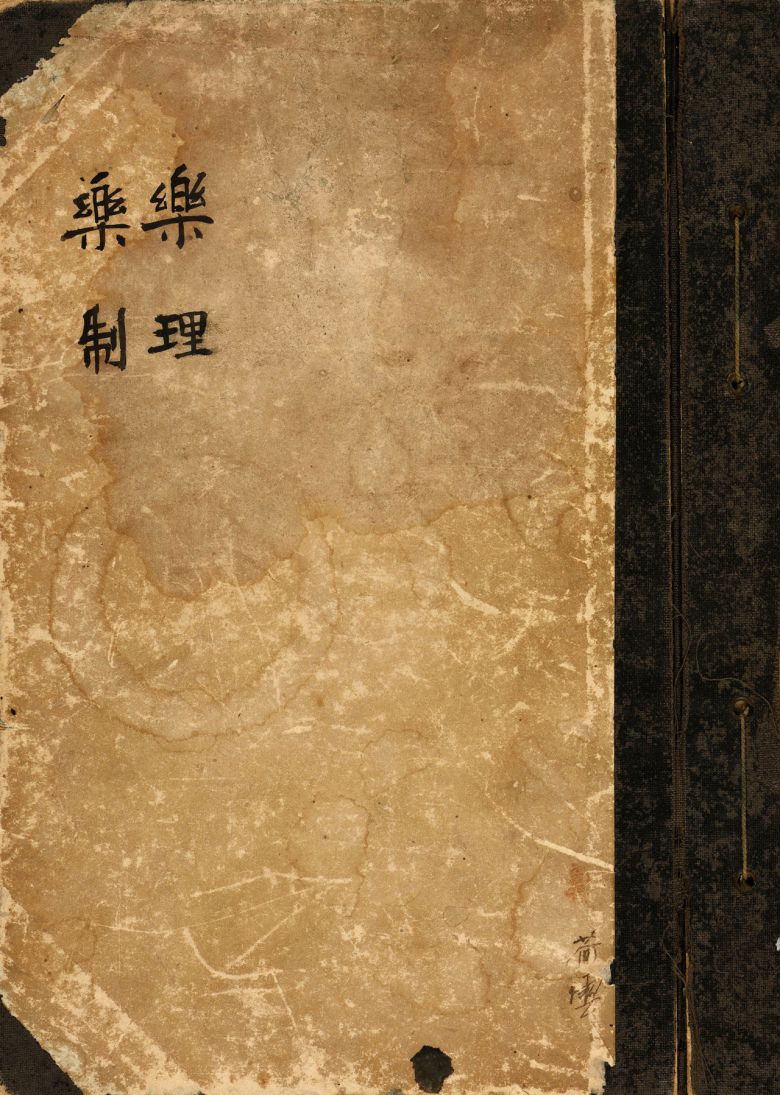 樂理
樂制